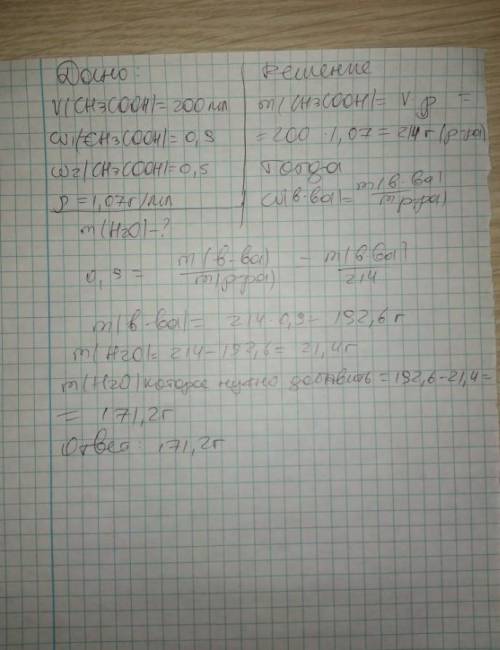 Дано:
Решение
V(CH3COOH)=200мл
m(CH3COOH)= V ρ =
ω1(CH3COOH)=0,9
=200·1,07=214г(р-ра)
ω2(CH3COOH)=0,5
Тогда
ρ=1,07г/мл
ω(в-ва)= m(в-ва) / m(р-ра)
m(H2O)-?
0,9 = m(в-ва) / m(р-ра) = m(в-ва) / 214
m(в-ва)= 214·0,9= 192,6 г
m(H2O)= 214-192,6= 21,4г
m(H2O) которое нужно добавить=192,6-21,4=
= 171,2г
Ответ: 171,2г